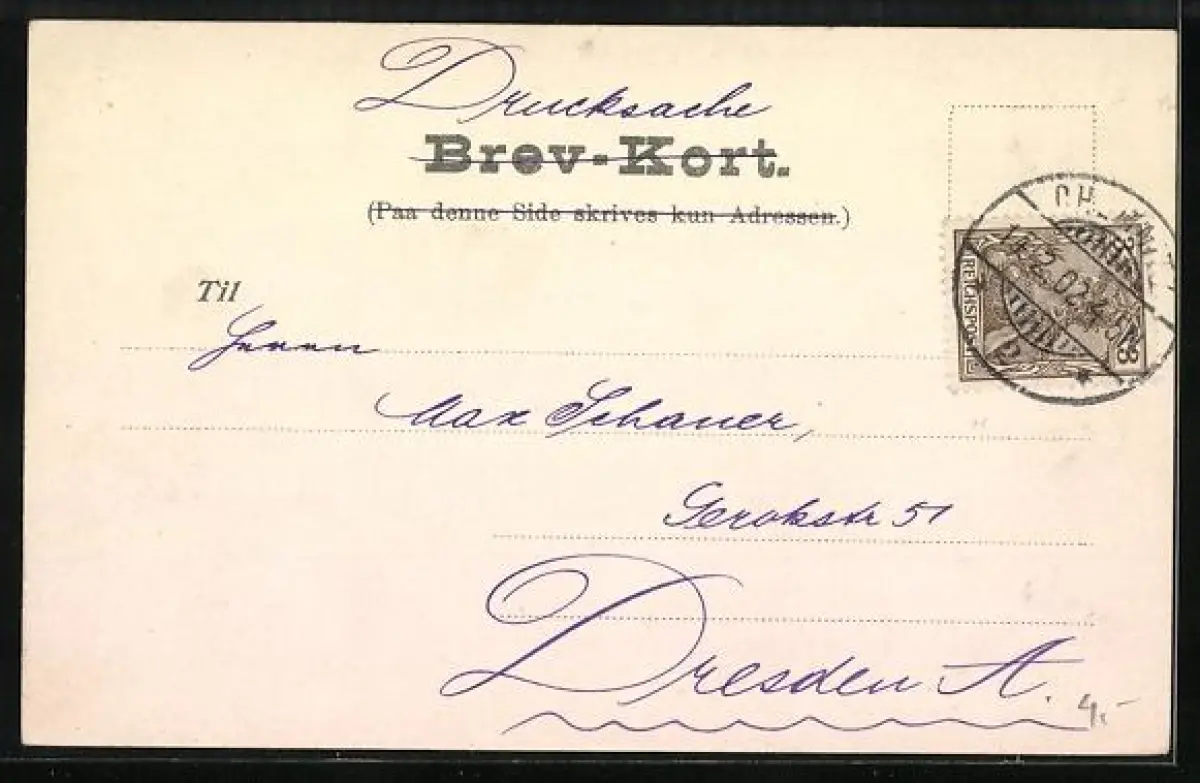 Drucksache
Brev-Kort.
(Paa denne Side skrives kun Adressen.)
Til
Herrn
Max Schauer,
Gerokstr 51
Dresden A.
4,-
REICHSPOST
3